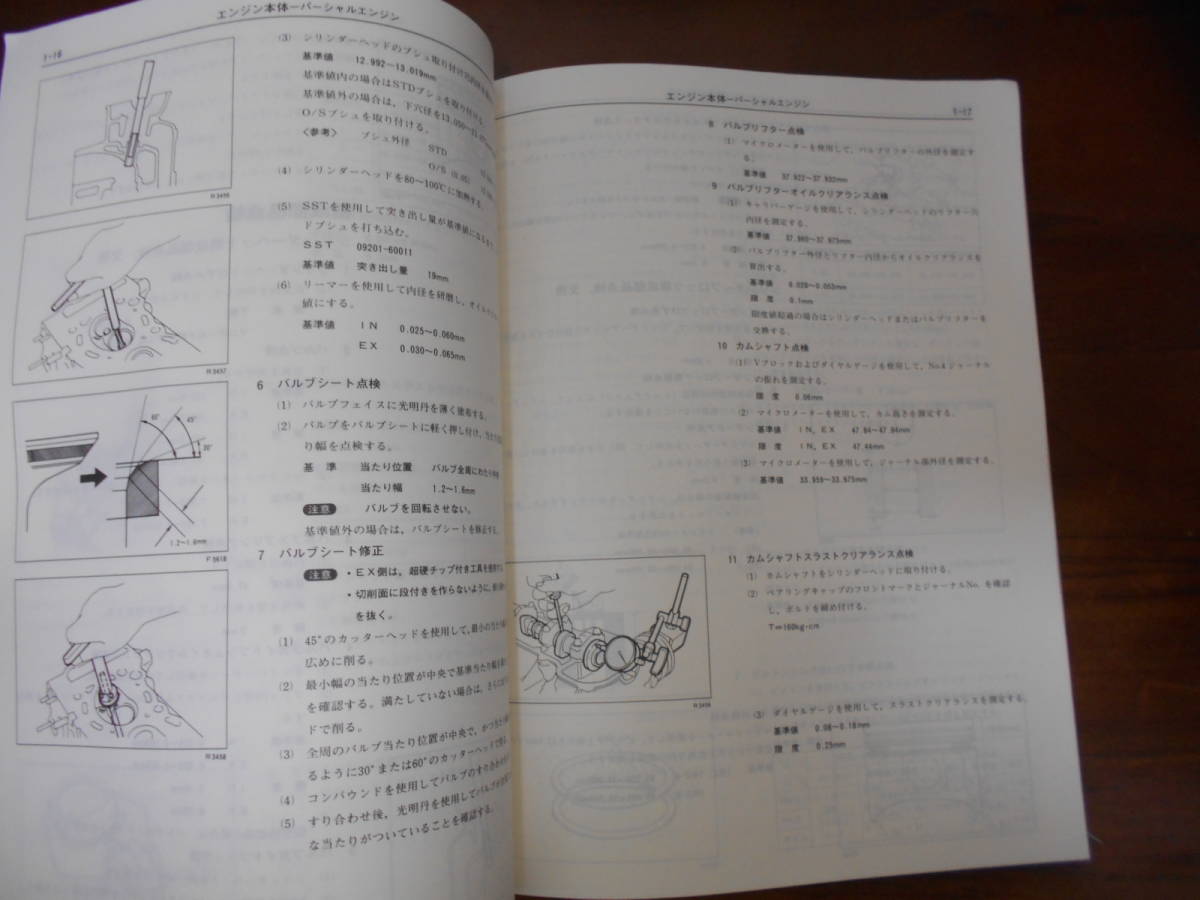 エンジン本体ーパーシャルエンジン
1-16
(3) シリンダーヘッドのブシュ取り付け
基準値 12.992〜13.019mm
基準値内の場合はSTDブシュを取り付ける。
基準値外の場合は、下穴径を13.050〜
O/Sブシュを取り付ける。
〈参考〉 ブシュ外径 STD
O/S (0.05)
(4) シリンダーヘッドを80〜100℃に加熱する。
(5) SSTを使用して突き出し量が基準値になるまで
ドブシュを打ち込む。
SST 09201-60011
基準値 突き出し量 19mm
(6) リーマーを使用して内径を研磨し、オイル
値にする。
基準値 IN 0.025〜0.060mm
EX 0.030〜0.065mm
R3456
R3457
6 バルブシート点検
(1) バルブフェイスに光明丹を薄く塗布する。
(2) バルブをバルブシートに軽く押し付け、当た
り幅を点検する。
基 準 当たり位置 バルブ全周にわたり
当たり幅 1.2〜1.6mm
注意 バルブを回転させない。
基準値外の場合は、バルブシートを修正する。
60° 45° 30°
1.2〜1.6mm
F5618
7 バルブシート修正
注意 ・EX側は、超硬チップ付き工具を使用する
・切削面に段付きを作らないように、
を抜く。
(1) 45°のカッターヘッドを使用して、最小の当たり
広めに削る。
(2) 最小幅の当たり位置が中央で基準当たり幅を
を確認する。満たしていない場合は、さらに
ドで削る。
(3) 全周のバルブ当たり位置が中央で、かつ当たり
るように30°または60°のカッターヘッドで
(4) コンパウンドを使用してバルブのすり合わせ
(5) すり合わせ後、光明丹を使用してバルブが
な当たりがついていることを確認する。
R3458
エンジン本体ーパーシャルエンジン
1-17
8 バルブリフター点検
(1) マイクロメーターを使用して、バルブリフターの外径を測定す
る。
基準値 37.922〜37.932mm
9 バルブリフターオイルクリアランス点検
(1) キャリパーゲージを使用して、シリンダーヘッドのリフター穴
内径を測定する。
基準値 37.960〜37.975mm
(2) バルブリフター外径とリフター内径からオイルクリアランスを
算出する。
基準値 0.028〜0.053mm
限 度 0.1mm
限度値超過の場合はシリンダーヘッドまたはバルブリフターを
交換する。
10 カムシャフト点検
(1) Vブロックおよびダイヤルゲージを使用して、No.4ジャーナル
の振れを測定する。
限 度 0.06mm
(2) マイクロメーターを使用して、カム高さを測定する。
基準値 IN、EX 47.84〜47.94mm
限 度 IN、EX 47.44mm
(3) マイクロメーターを使用して、ジャーナル部外径を測定する。
基準値 33.959〜33.975mm
11 カムシャフトスラストクリアランス点検
(1) カムシャフトをシリンダーヘッドに取り付ける。
(2) ベアリングキャップのフロントマークとジャーナルNo. を確認
し、ボルトを締め付ける。
T=160kg・cm
R3459
(3) ダイヤルゲージを使用して、スラストクリアランスを測定する。
基準値 0.08〜0.18mm
限 度 0.25mm